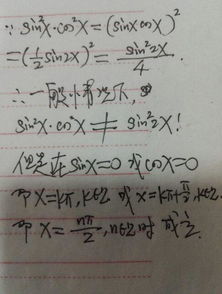 ∵ sin²x·cos²x=(sinxcosx)²
=(½sin2x)²=sin²2x/4.
∴一般情况下,
sin²x·cos²x≠sin²2x!
但是在sinx=0或cosx=0
即x=kπ,k∈Z或x=kπ+π/2,k∈Z.
即x=nπ/2,n∈Z时成立.